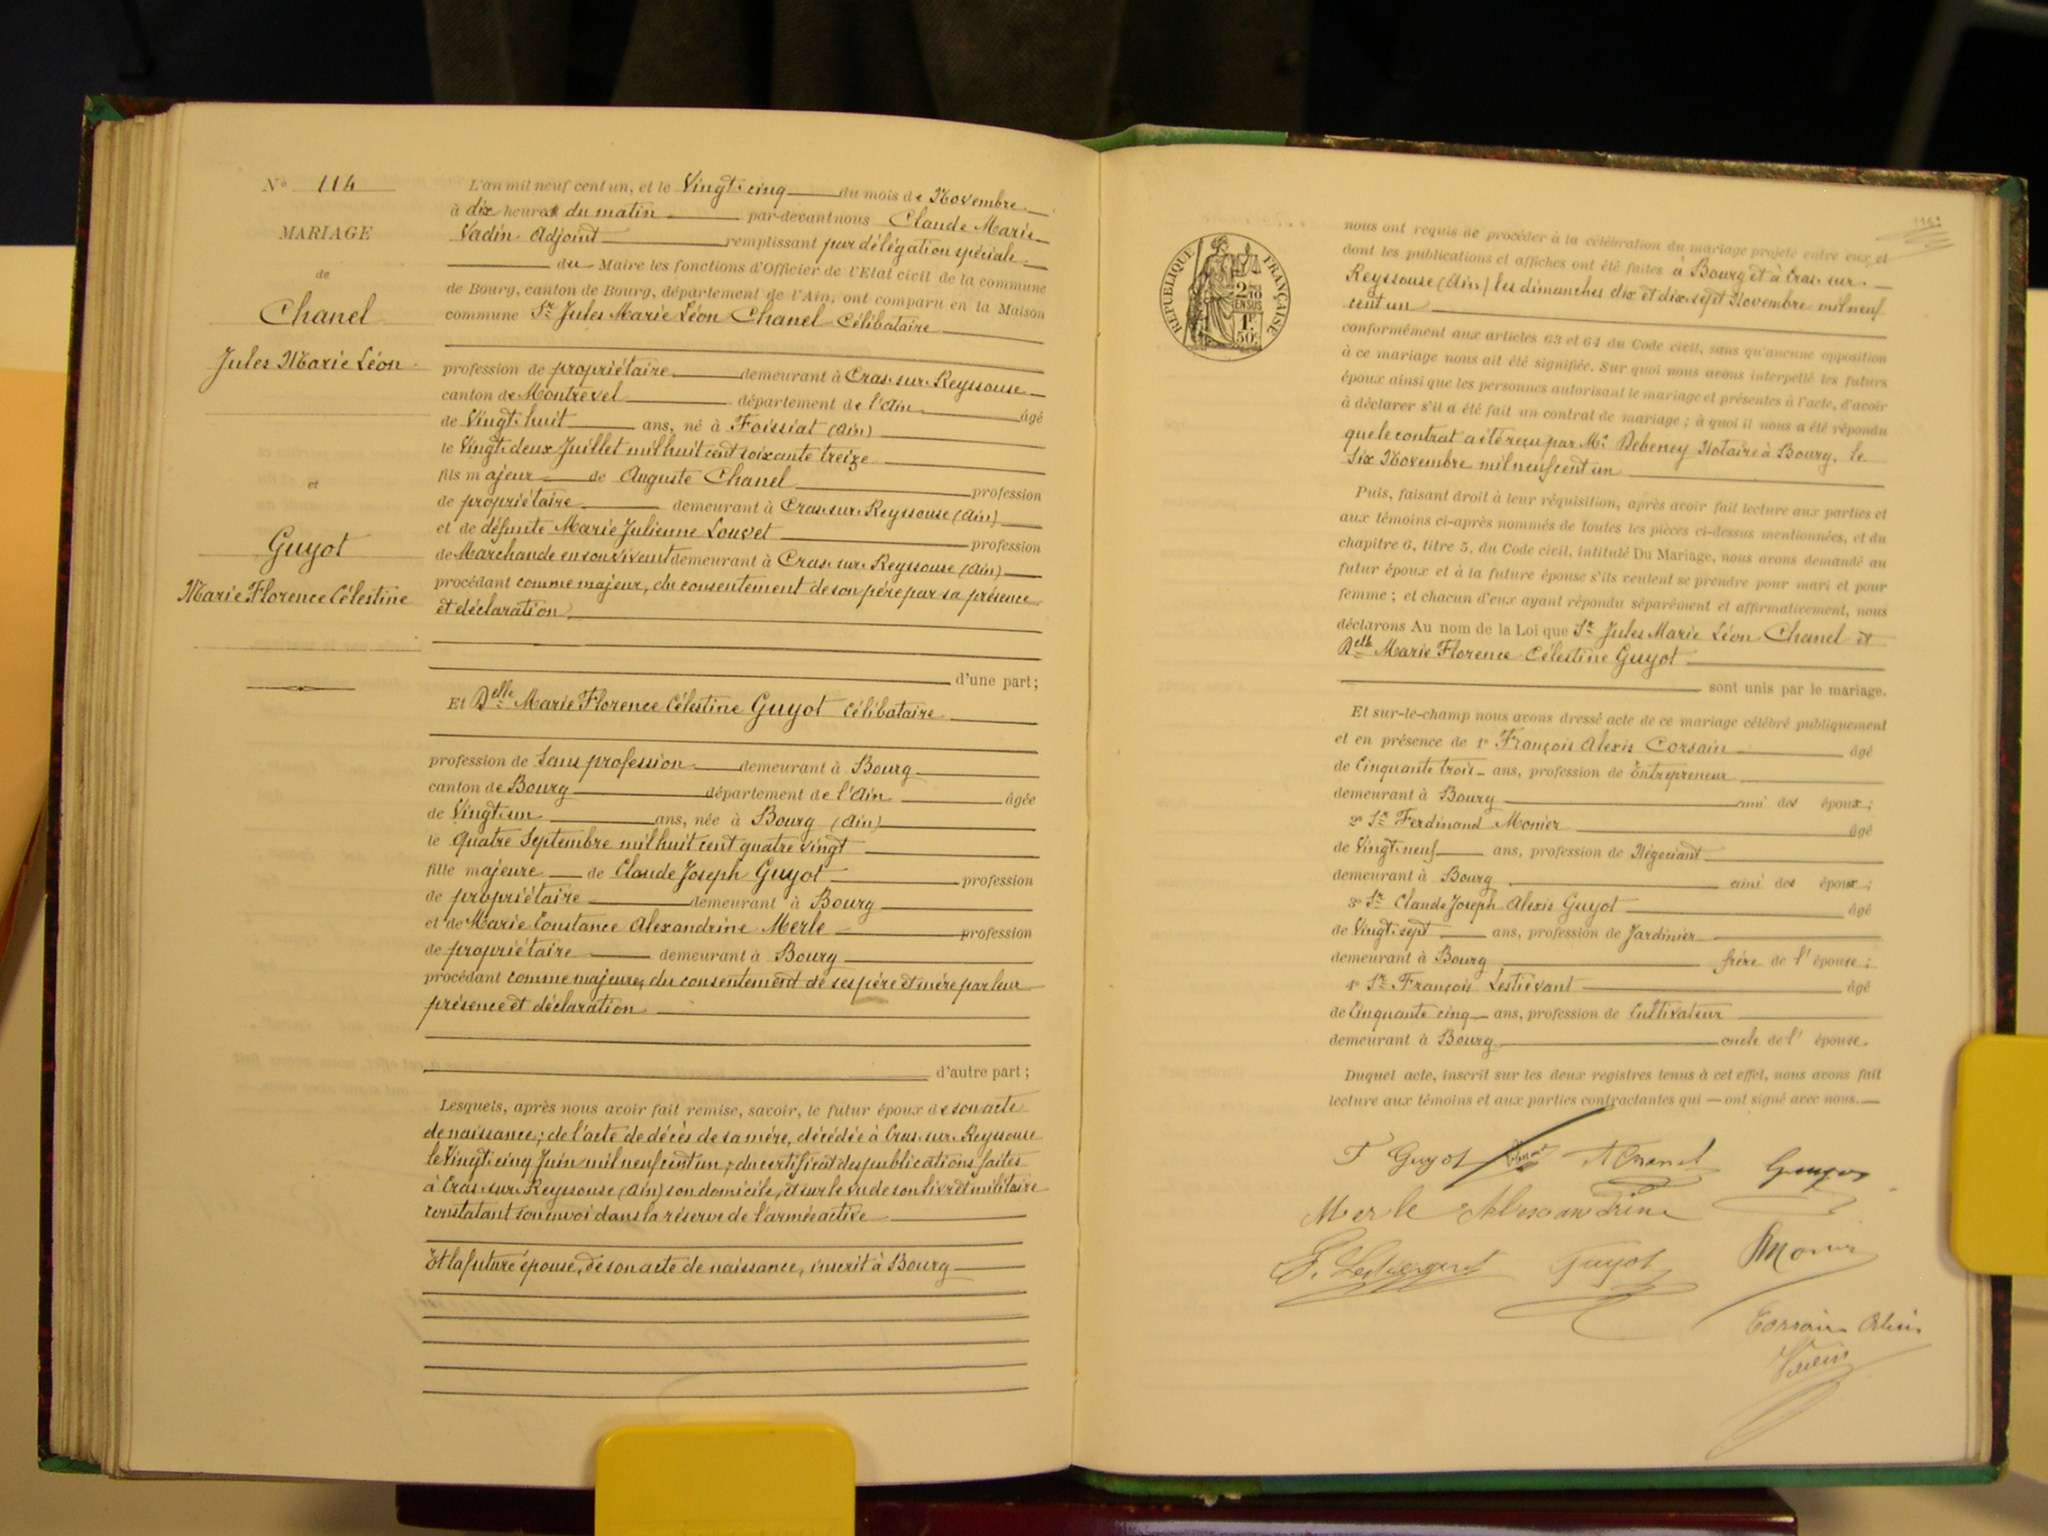 N° 114
MARIAGE
de
Chanel
Jules Marie Léon
et
Guyot
Marie Florence Célestine
L'an mil neuf cent un, et le Vingt-cinq du mois de Novembre
à dix heures du matin par-devant nous Claude Marie
Vadin Adjoint remplissant par délégation spéciale
du Maire les fonctions d'Officier de l'Etat civil de la commune
de Bourg, canton de Bourg, département de l'Ain, ont comparu en la Maison
commune Sr Jules Marie Léon Chanel Célibataire
profession de propriétaire demeurant à Cras-sur-Reyssouse
canton de Montrevel département de l'Ain âgé
de Vingt-huit ans, né à Foissiat (Ain)
le Vingt-deux Juillet mil huit cent soixante treize
fils majeur de Auguste Chanel profession
de propriétaire demeurant à Cras-sur-Reyssouse (Ain)
et de défunte Marie Julienne Louvet profession
de Marchande en son vivant demeurant à Cras-sur-Reyssouse (Ain)
procédant comme majeur, du consentement de son père par sa présence
et déclaration
d'une part;
Et Delle Marie Florence Célestine Guyot Célibataire
profession de Sans profession demeurant à Bourg
canton de Bourg département de l'Ain âgée
de Vingt-un ans, née à Bourg (Ain)
le Quatre Septembre mil huit cent quatre vingt
fille majeure de Claude Joseph Guyot profession
de propriétaire demeurant à Bourg
et de Marie Constance Alexandrine Merle profession
de propriétaire demeurant à Bourg
procédant comme majeure, du consentement de ses père et mère par leur
présence et déclaration
d'autre part;
Lesquels, après nous avoir fait remise, savoir, le futur époux de son acte
de naissance; de l'acte de décès de sa mère, décédée à Cras-sur-Reyssouse
le Vingt-cinq Juin mil neuf cent un; du certificat des publications faites
à Cras-sur-Reyssouse (Ain) son domicile, et sur le vu de son livret militaire
constatant son envoi dans la réserve de l'armée active
Et la future épouse, de son acte de naissance, inscrit à Bourg
RÉPUBLIQUE FRANÇAISE
2/10
EN SUS
1F
50c
nous ont requis de procéder à la célébration du mariage projeté entre eux et
dont les publications et affiches ont été faites à Bourg et à Cras-sur-
Reyssouse (Ain) les dimanches dix et dix-sept Novembre mil neuf
cent un
conformément aux articles 63 et 64 du Code civil, sans qu'aucune opposition
à ce mariage nous ait été signifiée. Sur quoi nous avons interpellé les futurs
époux ainsi que les personnes autorisant le mariage et présentes à l'acte, d'avoir
à déclarer s'il a été fait un contrat de mariage; à quoi il nous a été répondu
que le contrat a été reçu par Me Debeney Notaire à Bourg, le
Six Novembre mil neuf cent un
Puis, faisant droit à leur réquisition, après avoir fait lecture aux parties et
aux témoins ci-après nommés de toutes les pièces ci-dessus mentionnées, et du
chapitre 6, titre 5, du Code civil, intitulé Du Mariage, nous avons demandé au
futur époux et à la future épouse s'ils veulent se prendre pour mari et pour
femme; et chacun d'eux ayant répondu séparément et affirmativement, nous
déclarons Au nom de la Loi que Sr Jules Marie Léon Chanel et
Delle Marie Florence Célestine Guyot
sont unis par le mariage.
Et sur-le-champ nous avons dressé acte de ce mariage célébré publiquement
et en présence de 1° François Alexis Corsain âgé
de Cinquante trois ans, profession de Entrepreneur
demeurant à Bourg ami des époux;
2° Sr Ferdinand Monier âgé
de Vingt-neuf ans, profession de Négociant
demeurant à Bourg ami des époux;
3° Sr Claude Joseph Alexis Guyot âgé
de Vingt-sept ans, profession de Jardinier
demeurant à Bourg frère de l'épouse;
4° Sr François Lestievant âgé
de Cinquante cinq ans, profession de Cultivateur
demeurant à Bourg oncle de l'épouse.
Duquel acte, inscrit sur les deux registres tenus à cet effet, nous avons fait
lecture aux témoins et aux parties contractantes qui ont signé avec nous.
F Guyot A Chanel Guyot
Merle Alexandrine
F. Lestievant Guyot Monier
Corsain Alexis
Vadin